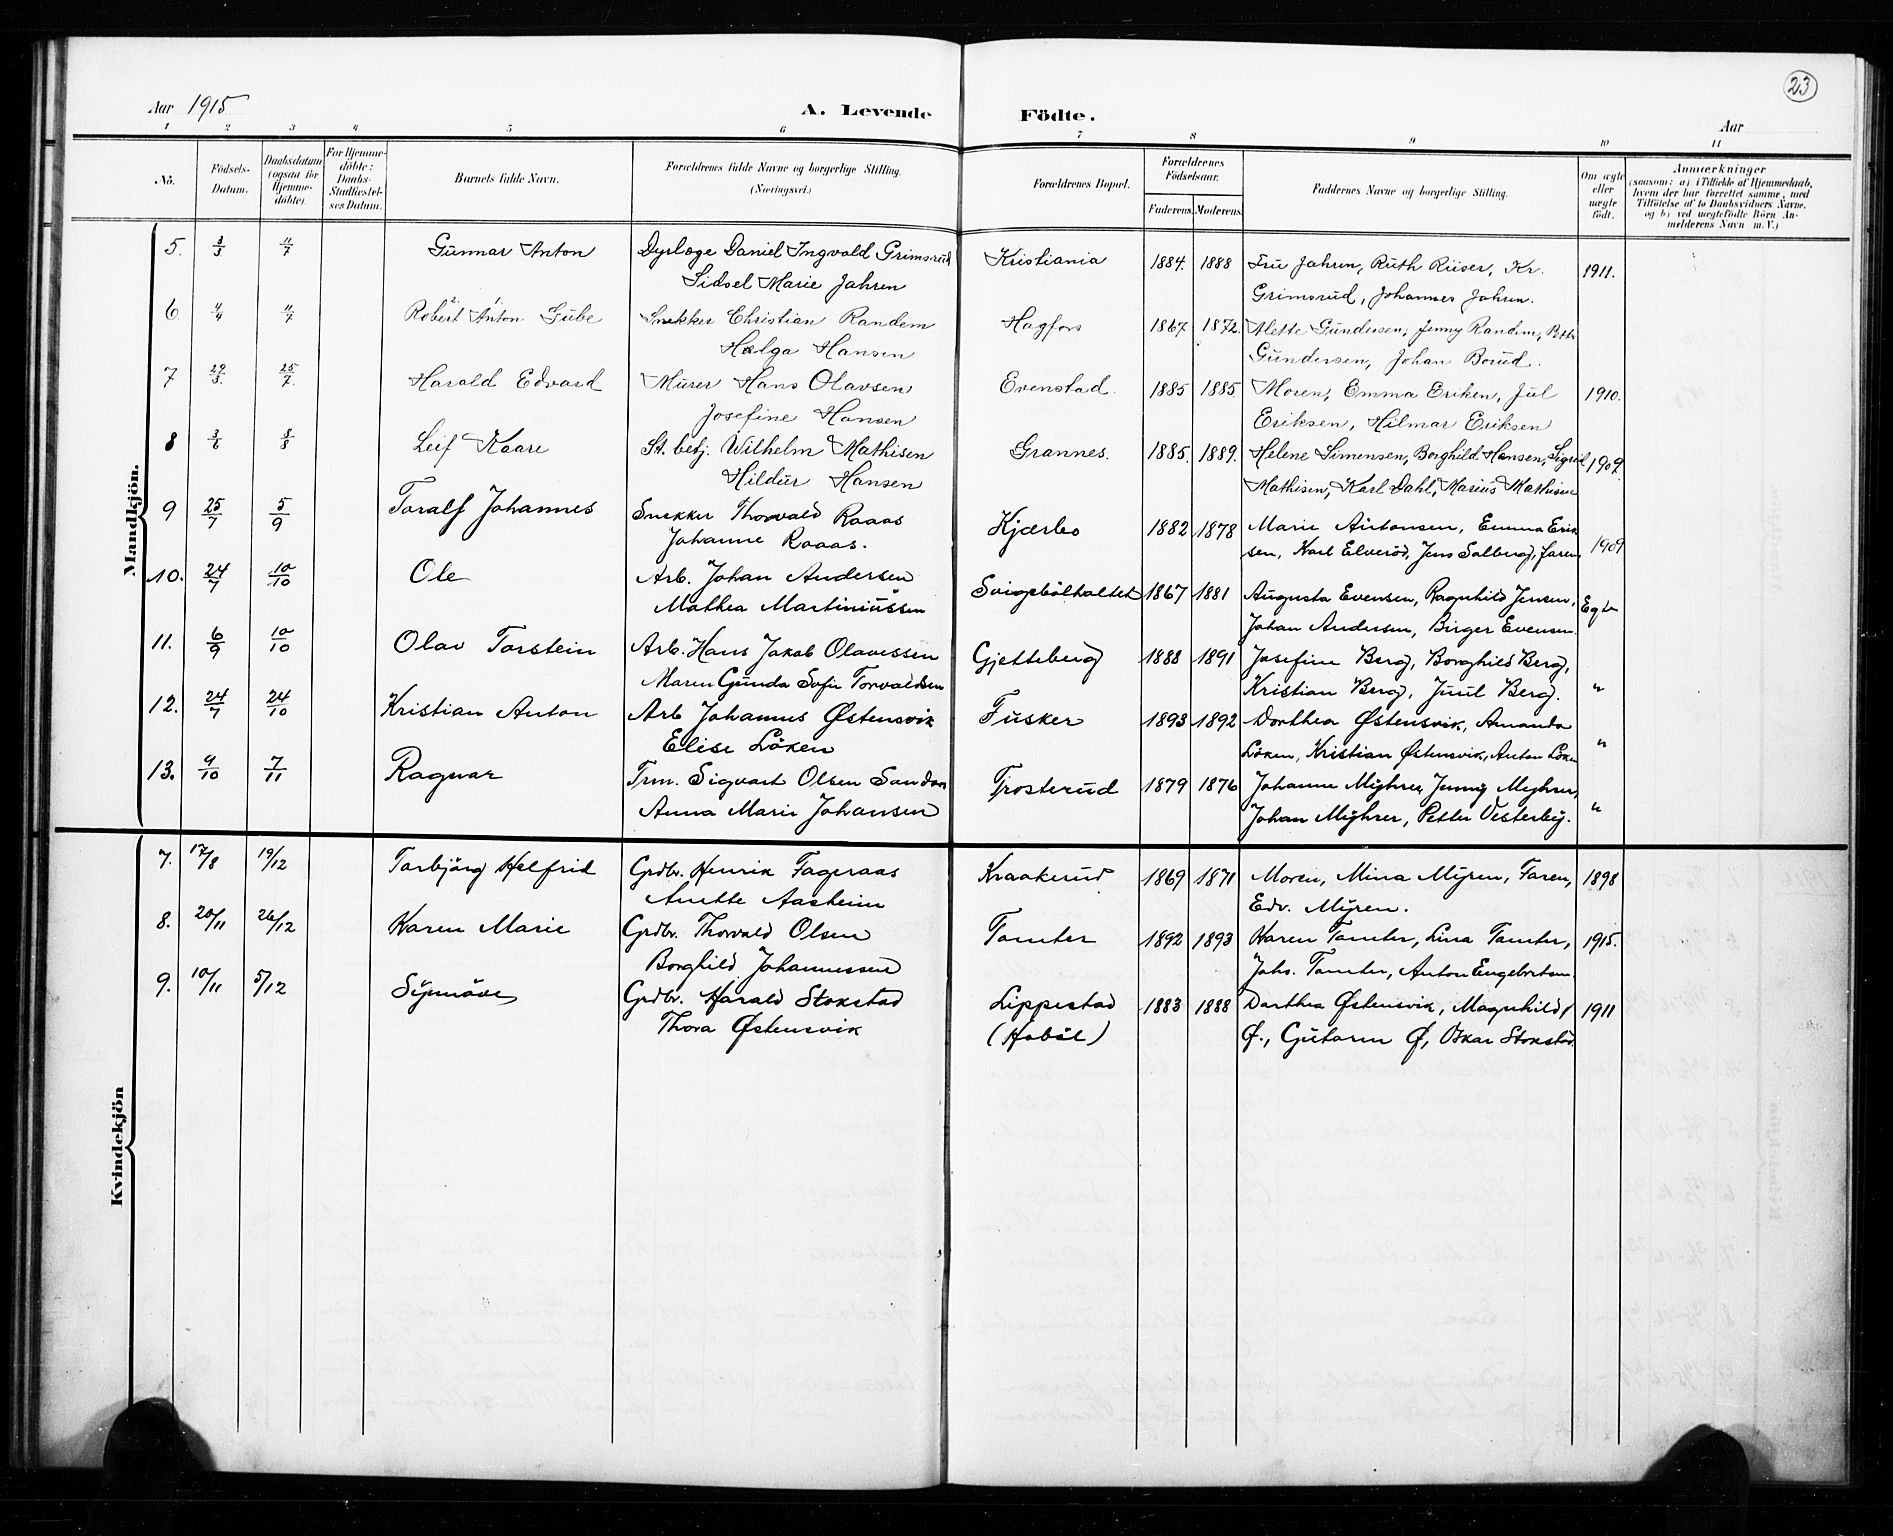 23
Aar 1915
A. Levende Födte.
Aar
1 2 3 4 5 6 7 8 9 10 11
No.
Födsels-Datum.
Daabsdatum (ogsaa for Hjemmedöbte).
For Hjemmedöbte: Daabs-Stadfæstelses Datum.
Barnets fulde Navn.
Forældrenes fulde Navne og borgerlige Stilling. (Næringsvei.)
Forældrenes Bopæl.
Forældrenes Fødselsaar.
Faderens. Moderens.
Faddernes Navne og borgerlige Stilling.
Om ægte eller uægte født.
Anmærkninger
(saasom: a) i Tilfælde af Hjemmedaab, hvem der har forrettet samme, med Tilföielse af to Daabsvidners Navne, og b) ved uægtefödte Børn Anmelderens Navn m.V.)
Mandkjön.
5. 3/3 11/7 Gunnar Anton Dyrlæge Daniel Ingvald Grimsrud Kristiania 1884. 1888 Fru Jahren, Ruth Riiser, Kr. 1911.
Sidsel Marie Jahren Grimsrud, Johannes Jahren.
6 4/4 11/7 Robert Anton Gube Snekker Christian Randem Hagfors 1867 1872. Alette Gundersen, Jenny Randem, Petter
Helga Hansen Gundersen, Johan Borud.
7 29/3. 25/7. Harald Edvard Murer Hans Olavsen Evenstad. 1885 1885. Moren, Emma Eriken, Jul 1910.
Josefine Hansen Eriksen, Hilmar Eriksen
8 3/6 8/8 Leif Kaare St. betj. Wilhelm Mathisen Grannes. 1885. 1889. Helene Simensen, Borghild Hansen, Sigrid 1909.
Hildur Hansen Mathisen, Karl Dahl, Marius Mathisen
9 25/7 5/9 Toralf Johannes Snekker Thorvald Raaas Kjærbo 1882 1878 Marie Antonsen, Emma Erik
Johanne Raaas. sen, Karl Elveröd, Jens Solberg, faren 1909
10. 24/7 10/10 Ole Arb. Johan Andersen Svigebölholtet 1867 1881 Augusta Evensen, Ragnhild Jensen, Egte
Mathea Martiniussen Johan Andersen, Birger Evensen.
11. 6/9 10/10 Olav Torstein Arb. Hans Jakob Olavessen Gjetteberg 1888 1891 Josefine Berg, Borghild Berg,
Maren Gunda Sofie Torvaldsen Kristian Berg, Juul Berg. "
12. 24/7 24/10 Kristian Anton Arb Johannes Østensvik Fusker 1893 1892 Dorthea Østensvik, Amanda
Elise Löken Löken, Kristian Østensvik, Anton Löken "
13. 9/10 7/11 Ragnar Trm. Sigvart Olsen Sandaas Trosterud 1879 1876 Johanne Myhrer, Jenny Myhrer,
Anna Marie Johansen Johan Myhrer, Petter Vesterby. "
Kvindekjön
7. 17/8 19/12 Torbjörg Helfrid Grdbr. Henrik Fageraas Kraakerud 1869 1871 Moren, Mina Myren, Faren, 1898
Anette Aasheim Edv. Myren.
8. 20/11 26/12 Karen Marie Grdbr. Thorvald Olsen Tomter 1892 1893 Karen Tomter, Lina Tomter, 1915.
Borghild Johannessen Johs. Tomter, Anton Engebretsen
9. 10/11 5/12 Synnöve Grdbr. Harald Stokstad Lippestad 1883 1888 Dorthea Østensvik, Magnhild 1911
Thora Østensvik (Hobøl) Ø., Gutorm Ø, Oskar Stokstad.